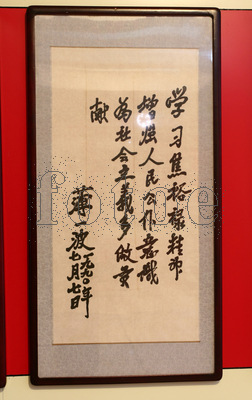 学习焦裕禄鞋帀
增强人民公仆意识
为社会主义多做贡
献
薄一波
一九九〇年
七月七日
fotoe